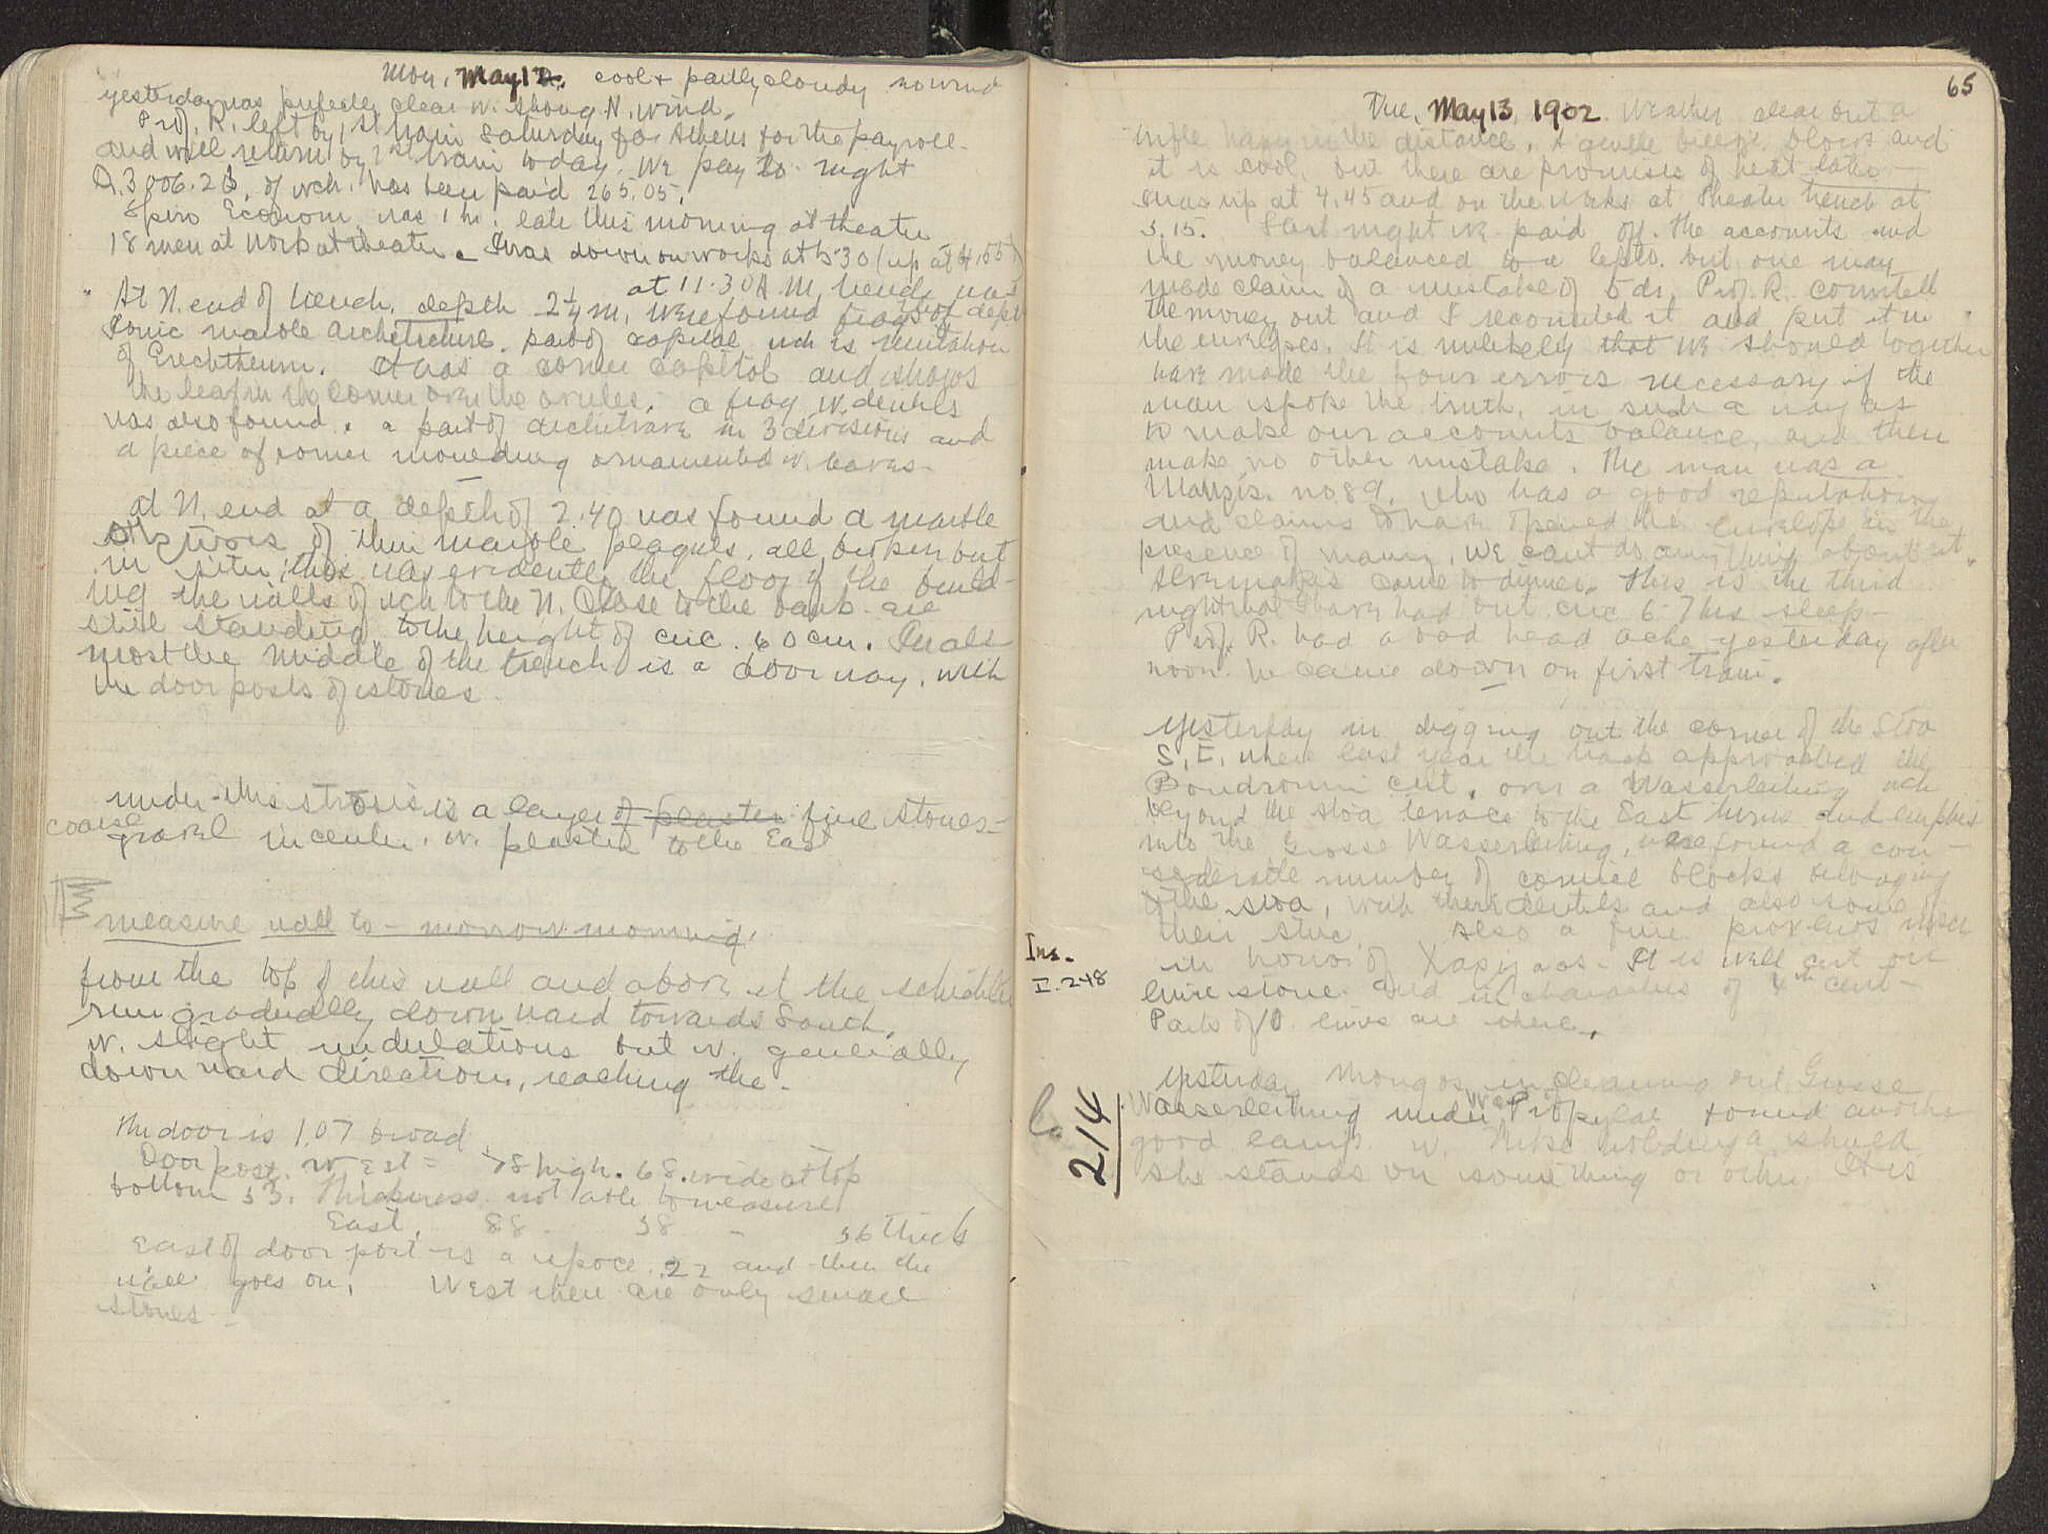 Mon, May 12. cool & partly cloudy no wind
yesterday was perfectly clear w. strong N. wind.
Prof. R. left by 1st train Saturday for Athens for the payroll.
and will return by 1st train today. We pay to-night
of wch. has been paid 265.05.
Spiro Econom was 1 hr. late this morning at theatre
18 men at work at theatre. I was down on works at 5.30 (up at 4.55)
at 11.30 A M, trench was
At N. end of trench, depth 2¼ m, were found frags of
Ionic marble architecture. part of capital wch is imitation
of Erechtheum. It was a corner capitol and shows
the leaf in the corner over the ovules. a frag w. dentils
was also found. a part of architrave in 3 divisions and
a piece of corner moulding ornamented w. leaves-
at N. end at a depth of 2.40 was found a marble
of thin marble plaques, all broken but
in situ; this was evidently the floor of the build-
ing the walls of wch to the N. close to the bank are
still standing to the height of circ. 60 cm. In al-
most the middle of the trench is a door way, with
the door posts of stones.
under this strosis is a layer of plaster fine stones-
coarse
gravel in center. w. plaster to the East
measure wall to-morrow morning.
from the top of this wall and above it the
run gradually downward towards South,
w. slight undulations but w. generally
downward direction, reaching the-
The door is 1.07 broad
Door post West = 78 high. 68 wide at top
bottom 53. Thickness not able to measure
East, 88 - 38 - 36 thick
East of door post is a space .22 and then the
wall goes on. West there are only small
stones-
65
Tue, May 13, 1902. Weather clear but a
trifle hazy in the distance. A gentle breeze blows and
it is cool, but there are promises of heat later-
I was up at 4.45 and on the works at theatre trench at
5.15. Last night we paid off. The accounts and
the money balanced to a lepto. but one man
made claim of a mistake of 5 dr. Prof. R. counted
the money out and I recounted it and put it in
the envelopes. It is unlikely that we should together
have made the four errors necessary if the
man spoke the truth, in such a way as
to make our accounts balance, and then
make no other mistake. The man was a
no 89, who has a good reputation
and claims to have opened the envelope in the
presence of many, We can't do any thing about it.
came to dinner. This is the third
night that I have had but circ 6-7 hrs sleep-
Prof. R. had a bad head ache yesterday after
noon. he came down on first train.
yesterday in digging out the corner of the Stoa
S. E. where last year the track approached the
Boudroumi cut, over a Wasserleitung wch
beyond the stoa terrace to the East turns and empties
into the Grosse Wasserleitung, were found a con-
siderable number of cornice blocks belonging
to the stoa, with their dentils and also some
their stuc. Also a fine proxenos inscr
Ins.
in honor of It is well cut on
I. 248
lime stone and in characters of 4th cent-
Parts of 10 lines are there.
yesterday Mongos in cleaning out Grosse
Wasserleitung under West Propylae found another
214
good lamp w. Nike holding a shield
she stands on something or other. It is